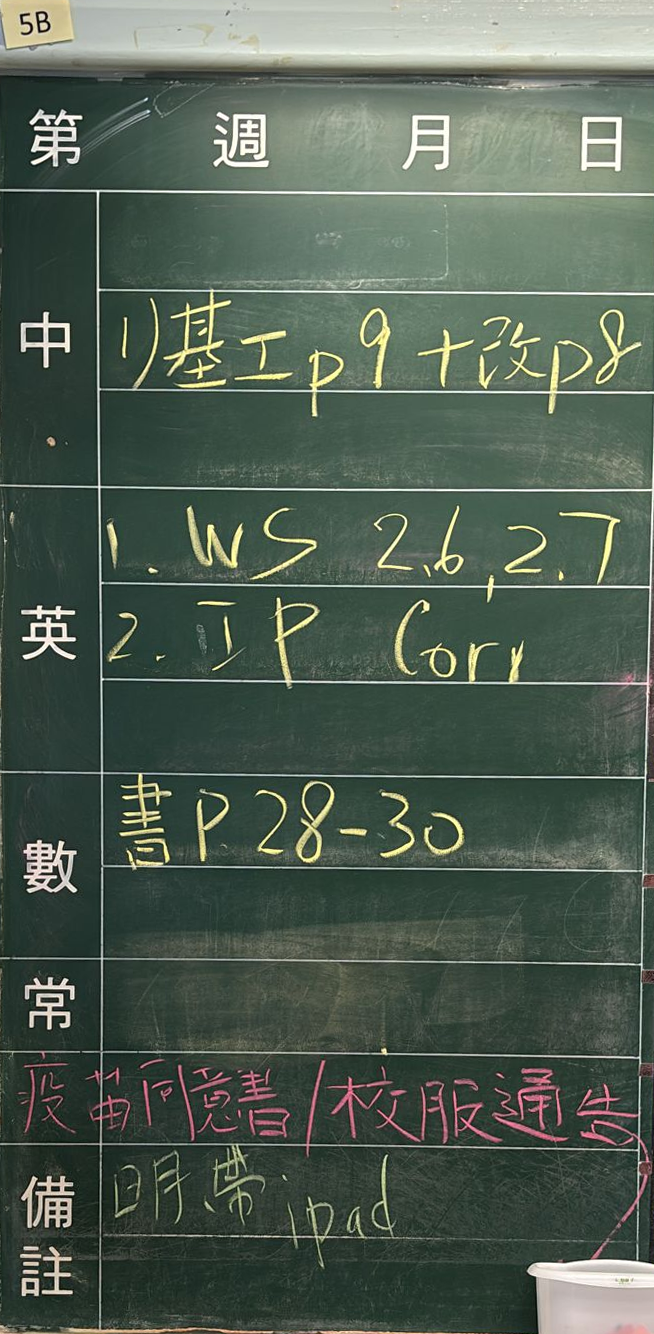 5B
第 週 月 日
中
1)基工p9+改p8
英
1. WS 2.6, 2.7
2. IP Corr
數
書P.28-30
常
疫苗同意書/校服通告
備註
明帶ipad